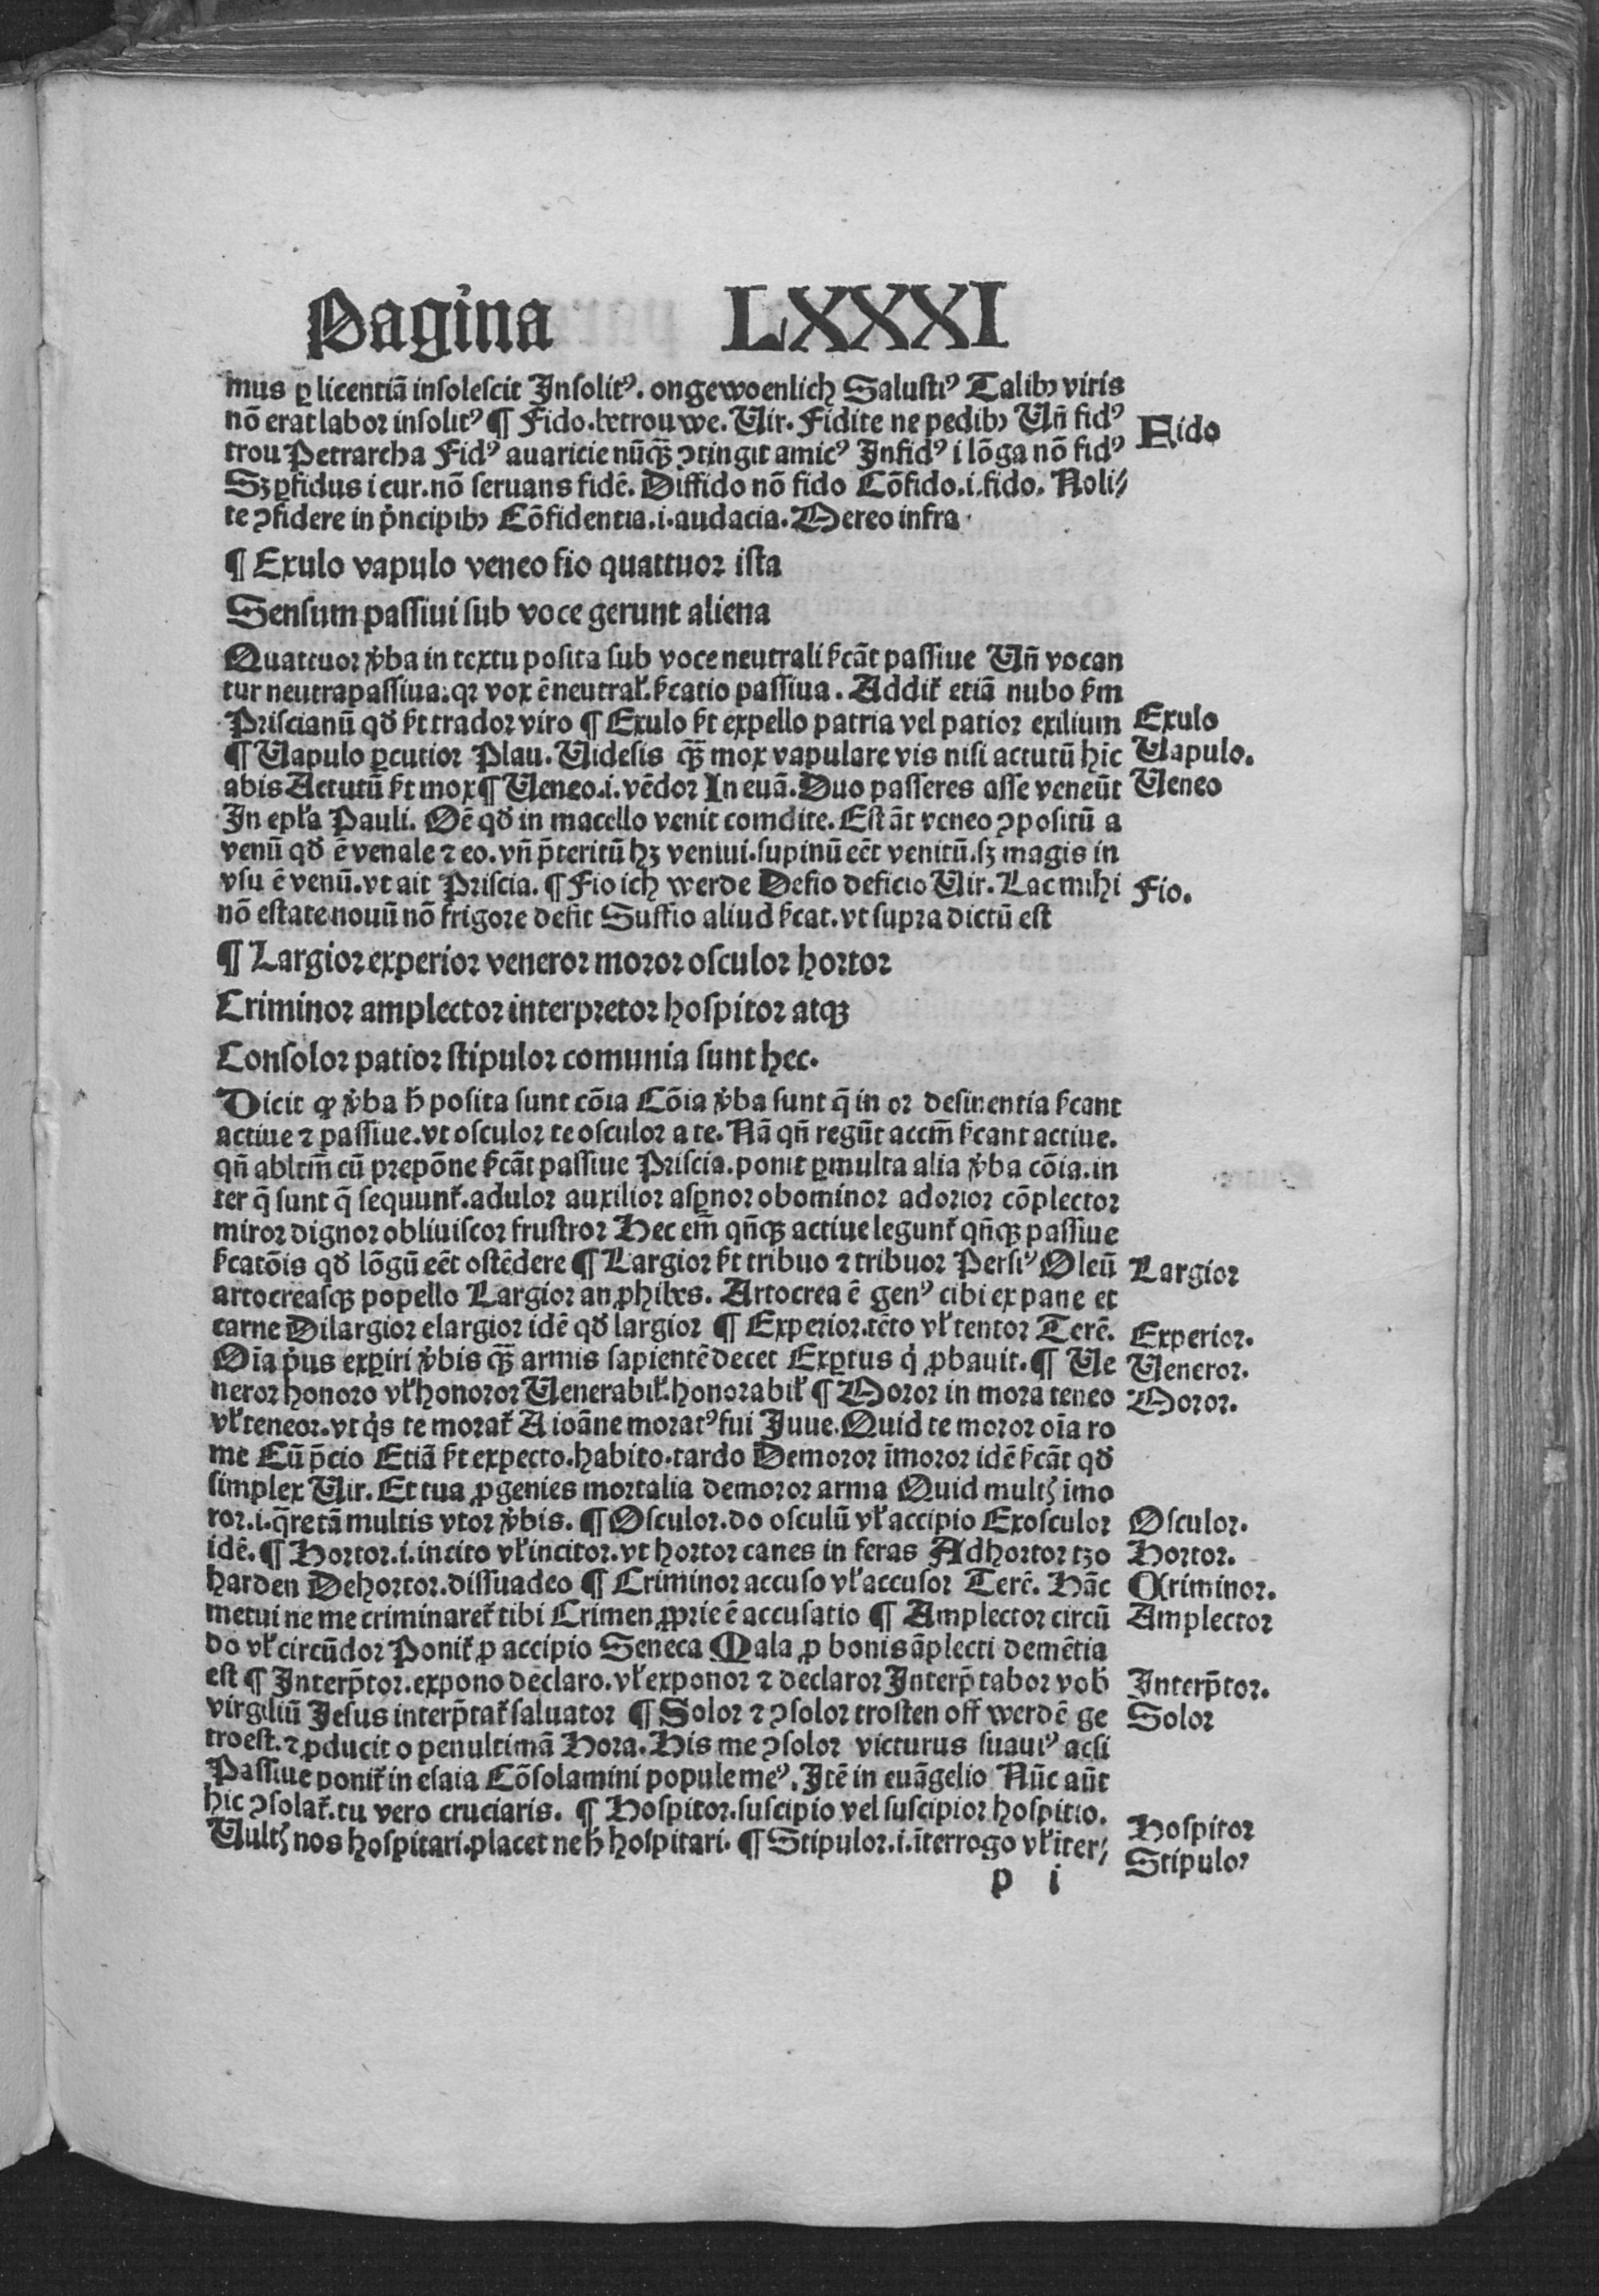 Pagina LXXXI
mus ꝑ licentiā insolescit Insolitꝰ. ongewoenlich Salustꝰ Talibꝫ viris
nō erat labor insolitꝰ ¶ Fido. betrouwe. Uir. Fidite ne pedibꝫ Uñ fidꝰ
Fido
trou Petrarcha Fidꝰ auaricie nūq̄ꝫ ꝯtingit amicꝰ Infidꝰ i lōga nō fidꝰ
Sꝫ ꝑfidus i cur. nō seruans fidē. Diffido nō fido Cōfido. i. fido. Noli⸗
te ꝯfidere in pͥncipibꝫ Cōfidentia. i. audacia. Mereo infra
¶ Exulo vapulo veneo fio quattuor ista
Sensum passiui sub voce gerunt aliena
Quattuor v̓ba in textu posita sub voce neutrali sͥcāt passiue Uñ vocan
tur neutrapassiua. qꝛ vox ē neutraƚ. sͥcatio passiua. Addiťˢ etiā nubo sͥm
Priscianū qđ sͥt trador viro ¶ Exulo sͥt expello patria vel patior exilium
Exulo
¶ Uapulo ꝑcutior Plau. Uidesis q̄ꝫ mox vapulare vis nisi actutū hīc
Uapulo.
abis Actutū sͥt mox ¶ Ueneo. i. vēdor In euā. Duo passeres asse veneūt
Ueneo
In epƚa Pauli. Oē qđ in macello venit comdite. Est āt veneo ꝯpositū a
venū qđ ē venale ⁊ eo. vñ p̄teritū hꝫ veniui. supinū eēt venitū. sꝫ magis in
vsu ē venū. vt ait Priscia. ¶ Fio ich werde Defio deficio Uir. Lac mihi
Fio.
nō estate nouū nō frigore defit Suffio aliud sͥcat. vt supra dictū est
¶ Largior experior veneror moror osculor hortor
Criminor amplector interpretor hospitor atqꝫ
Consolor patior stipulor comunia sunt hec.
Dicit ꝙ v̓ba ħ posita sunt cōia Cōia v̓ba sunt q̄ in or desinentia sͥcant
actiue ⁊ passiue. vt osculor te osculor a te. Nā qñ regūt accm̄ sͥcant actiue.
qñ abltm̄ cū prepōne sͥcāt passiue Priscia. ponit ꝑmulta alia v̓ba cōia. in
ter q̄ sunt q̄ sequunť. adulor auxilior asꝑnor obominor adorior cōplector
miror dignor obliuiscor frustror Hec em̄ qñqꝫ actiue legunť qñqꝫ passiue
sͥcatōis qđ lōgū eēt ostēdere ¶ Largior sͥt tribuo ⁊ tribuor Persiꝰ Oleū
Largior
artocreasqꝫ popello Largior an ꝓhibes. Artocrea ē genꝰ cibi ex pane et
carne Dilargior elargior idē qđ largior ¶ Experior. tēto vƚ tentor Terē.
Experior.
Oīa pͥus exꝑiri v̓bis q̄ꝫ armis sapientē decet Exꝑtus qͥ ꝓbauit. ¶ Ue
Ueneror.
neror honoro vƚ honoror Uenerabiƚ. honorabiƚ ¶ Moror in mora teneo
Moror.
vƚ teneor. vt qͥs te morať A ioāne moratꝰ fui Juue. Quid te moror oīa ro
me Cū p̄cio Etiā sͥt expecto. habito. tardo Demoror īmoror idē sͥcāt qđ
simplex Uir. Et tua ꝓgenies mortalia demoror arma Quid multꝭ imo
ror. i. q̄re tā multis vtor v̓bis. ¶ Osculor. do osculū vƚ accipio Exosculor
Osculor.
idē. ¶ Hortor. i. incito vƚ incitor. vt hortor canes in feras Adhortor tzo
Hortor.
harden Dehortor. dissuadeo ¶ Criminor accuso vƚ accusor Terē. Hāc
Criminor.
metui ne me criminareť tibi Crimen ꝓprie ē accusatio ¶ Amplector circū
Amplector
do vƚ circūdor Poniť ꝓ accipio Seneca Mala ꝓ bonis āplecti demētia
est ¶ Interp̄tor. expono declaro. vƚ exponor ⁊ declaror Interp̄tabor vob̄
Interp̄tor.
virgiliū Jesus interp̄tať saluator ¶ Solor ⁊ ꝯsolor trosten off werdē ge
Solor
troest. ⁊ ꝓducit o penultimā Hora. His me ꝯsolor victurus suauiꝰ acsi
Passiue poniť in esaia Cōsolamini popule meꝰ. Itē in euāgelio Nūc aūt
hic ꝯsolať. tu vero cruciaris. ¶ Hospitor. suscipio vel suscipior hospitio.
Hospitor
Uultꝭ nos hospitari. placet ne ħ hospitari. ¶ Stipulor. i. īterrogo vƚ iter⸗
Stipulor
p i